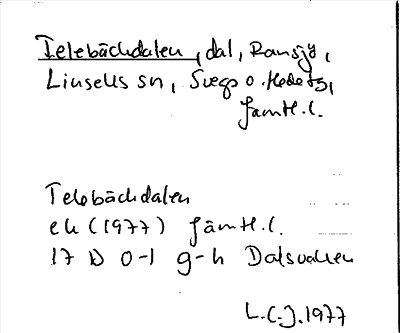 Telebäckdalen, dal, Ransjö,
Linsells sn, Svegs o. Hedets,
Jämtl.l.
Telebäckdalen
ek (1977) Jämtl.l.
17 D 0-1 g-h Dalsvallen
L.C.J. 1977